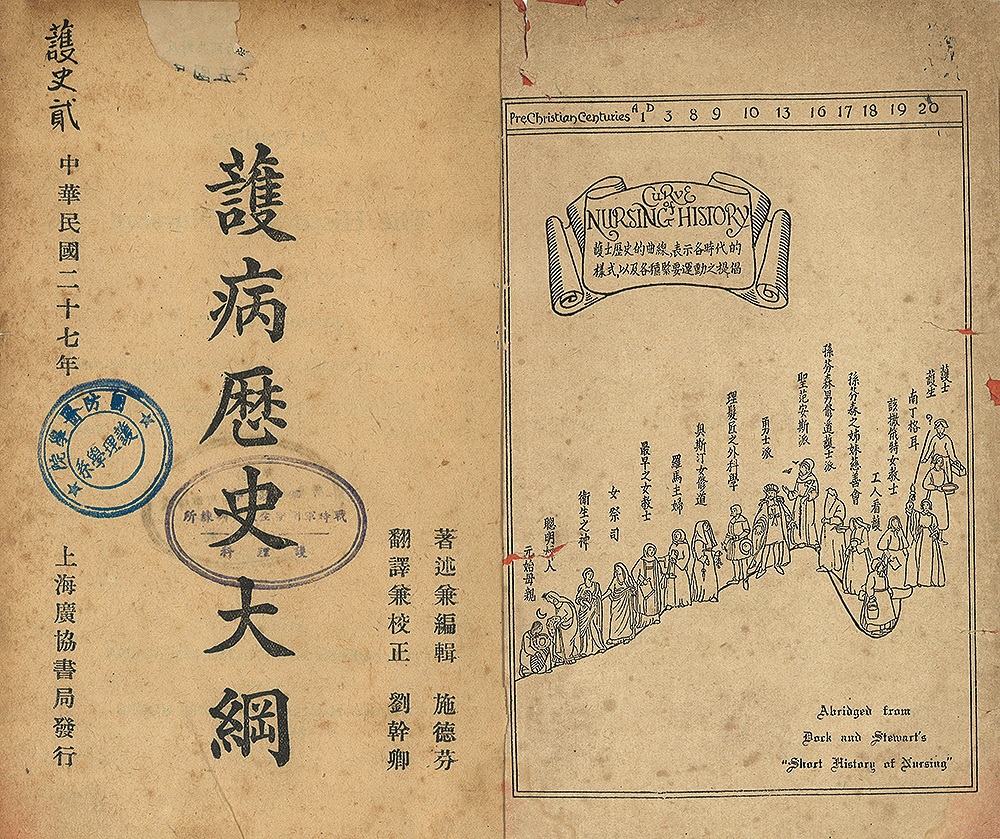 護史貳
中華民國二十七年
上海廣協書局發行
護病歷史大綱
著述兼編輯 施德芬
翻譯兼校正 劉幹卿
國防醫學院
護理學系
護理科
PreChristian Centuries AD 1 3 8 9 10 13 16 17 18 19 20
CURVE
of
NURSING HISTORY
護士歷史的曲線,表示各時代的
樣式,以及各種緊要運動之提倡
護士
護生 ?
南丁格耳
該撒俄特女教士
工人看護
孫芬森之姊妹慈善會
孫芬森男修道護士派
聖范安斯派
勇士派
理髮匠之外科學
奥斯汀女修道
羅馬主婦
最早之女教士
女祭司
衛生之神
聰明婦人
元始母親
Abridged from
Dock and Stewart's
"Short History of Nursing"